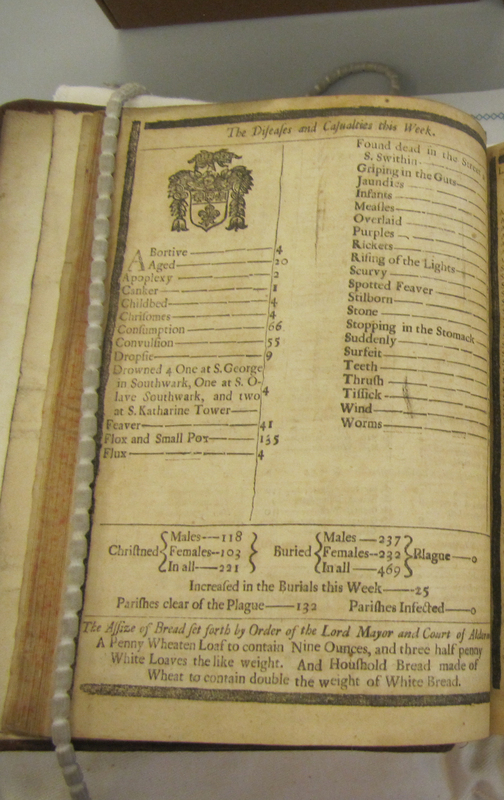 The Diseases and Casualties this Week.
Abortive 4
Aged 20
Apoplexy 2
Canker 1
Childbed 4
Chrisomes 4
Consumption 66
Convulsion 55
Dropsie 9
Drowned 4 One at S. George
in Southwark, One at S. O-
lave Southwark, and two
at S. Katharine Tower 4
Feaver 41
Flox and Small Pox 135
Flux 4
Found dead in the Street
S. Swithin
Griping in the Guts
Jaundies
Infants
Measles
Overlaid
Purples
Rickets
Rising of the Lights
Scurvy
Spotted Feaver
Stilborn
Stone
Stopping in the Stomack
Suddenly
Surfeit
Teeth
Thrush
Tissick
Wind
Worms
Christned
Males 118
Females 103
In all 221
Buried
Males 237
Females 232
In all 469
Plague 0
Increased in the Burials this Week 25
Parishes clear of the Plague 132 Parishes Infected 0
The Assize of Bread set forth by Order of the Lord Mayor and Court of
A Penny Wheaten Loaf to contain Nine Ounces, and three half penny
White Loaves the like weight. And Houshold Bread made of
Wheat to contain double the weight of White Bread.